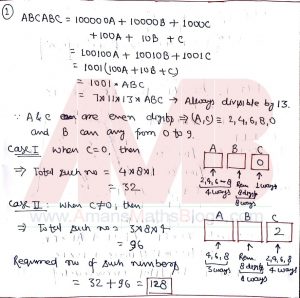 ① ABCABC = 100000A + 10000B + 1000C
+100A + 10B + C
= 100100A + 10010B + 1001C
= 1001(100A + 10B + C)
= 1001 * ABC
= 7*11*13*ABC → Always divisible by 13.
∵ A & C are even digits ⇒ (A, C) = 2,4,6,8,0
and B can any from 0 to 9.
Case I when C=0, then
⇒ Total such no = 4*8*1
= 32
A B C
0
2,4,6,8
4 ways
Rem
8 digits
8 ways
1 ways
Case II : when C≠0, then
⇒ Total such no = 3*8*4
= 96
A B C
2
4,6,8
3 ways
Rem
8 digits
8 ways
2,4,6,8
4 ways
Required no of such numbers
= 32 + 96 = 128
AMB
www.AmansMathsBlogs.com